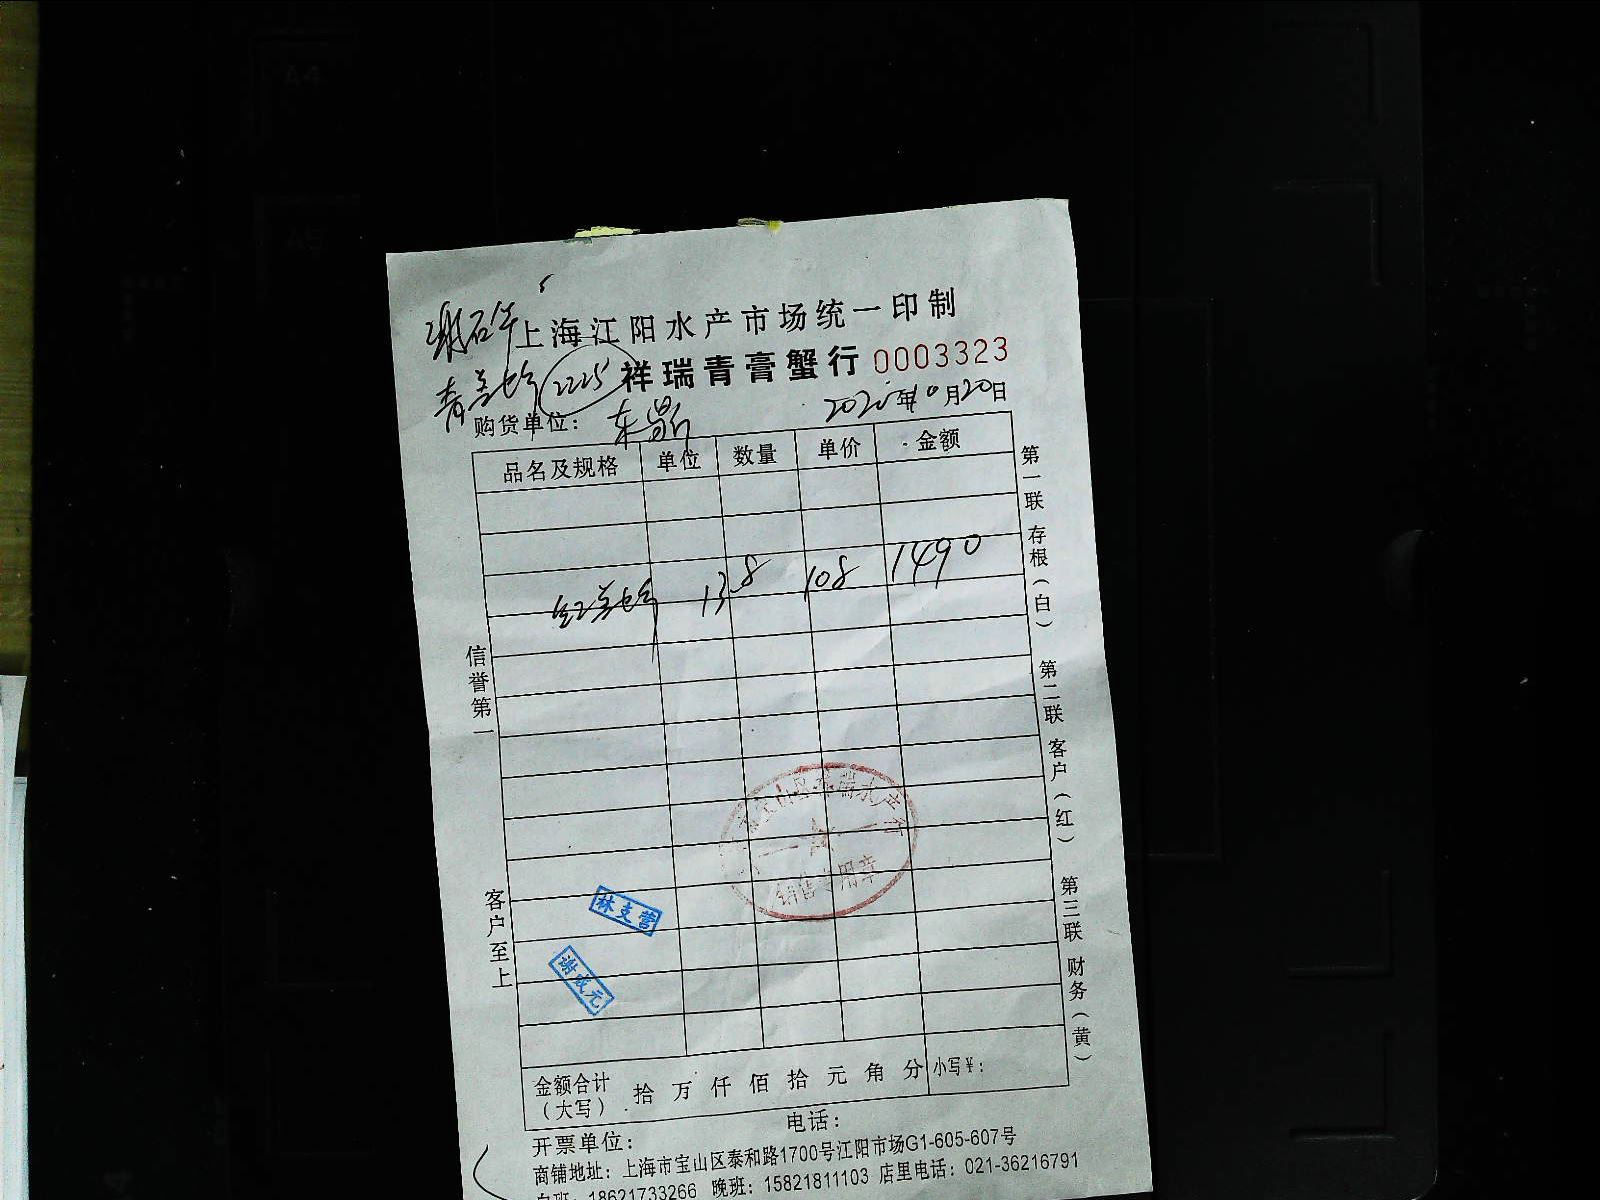 上海江阳水产市场统一印制
2225 祥瑞青膏蟹行 0003323
购货单位： 年 月20日
品名及规格 单位 数量 单价 金额
138 108 1490
第一联 存根（白）
第二联 客户（红）
第三联 财务（黄）
信誉第一
客户至上
宝山区祥瑞水产行
销售专用章
林支营
谢成元
金额合计（大写） 拾 万 仟 佰 拾 元 角 分 小写￥：
开票单位： 电话：
商铺地址：上海市宝山区泰和路1700号江阳市场G1-605-607号
白班：18621733266 晚班：15821811103 店里电话：021-36216791